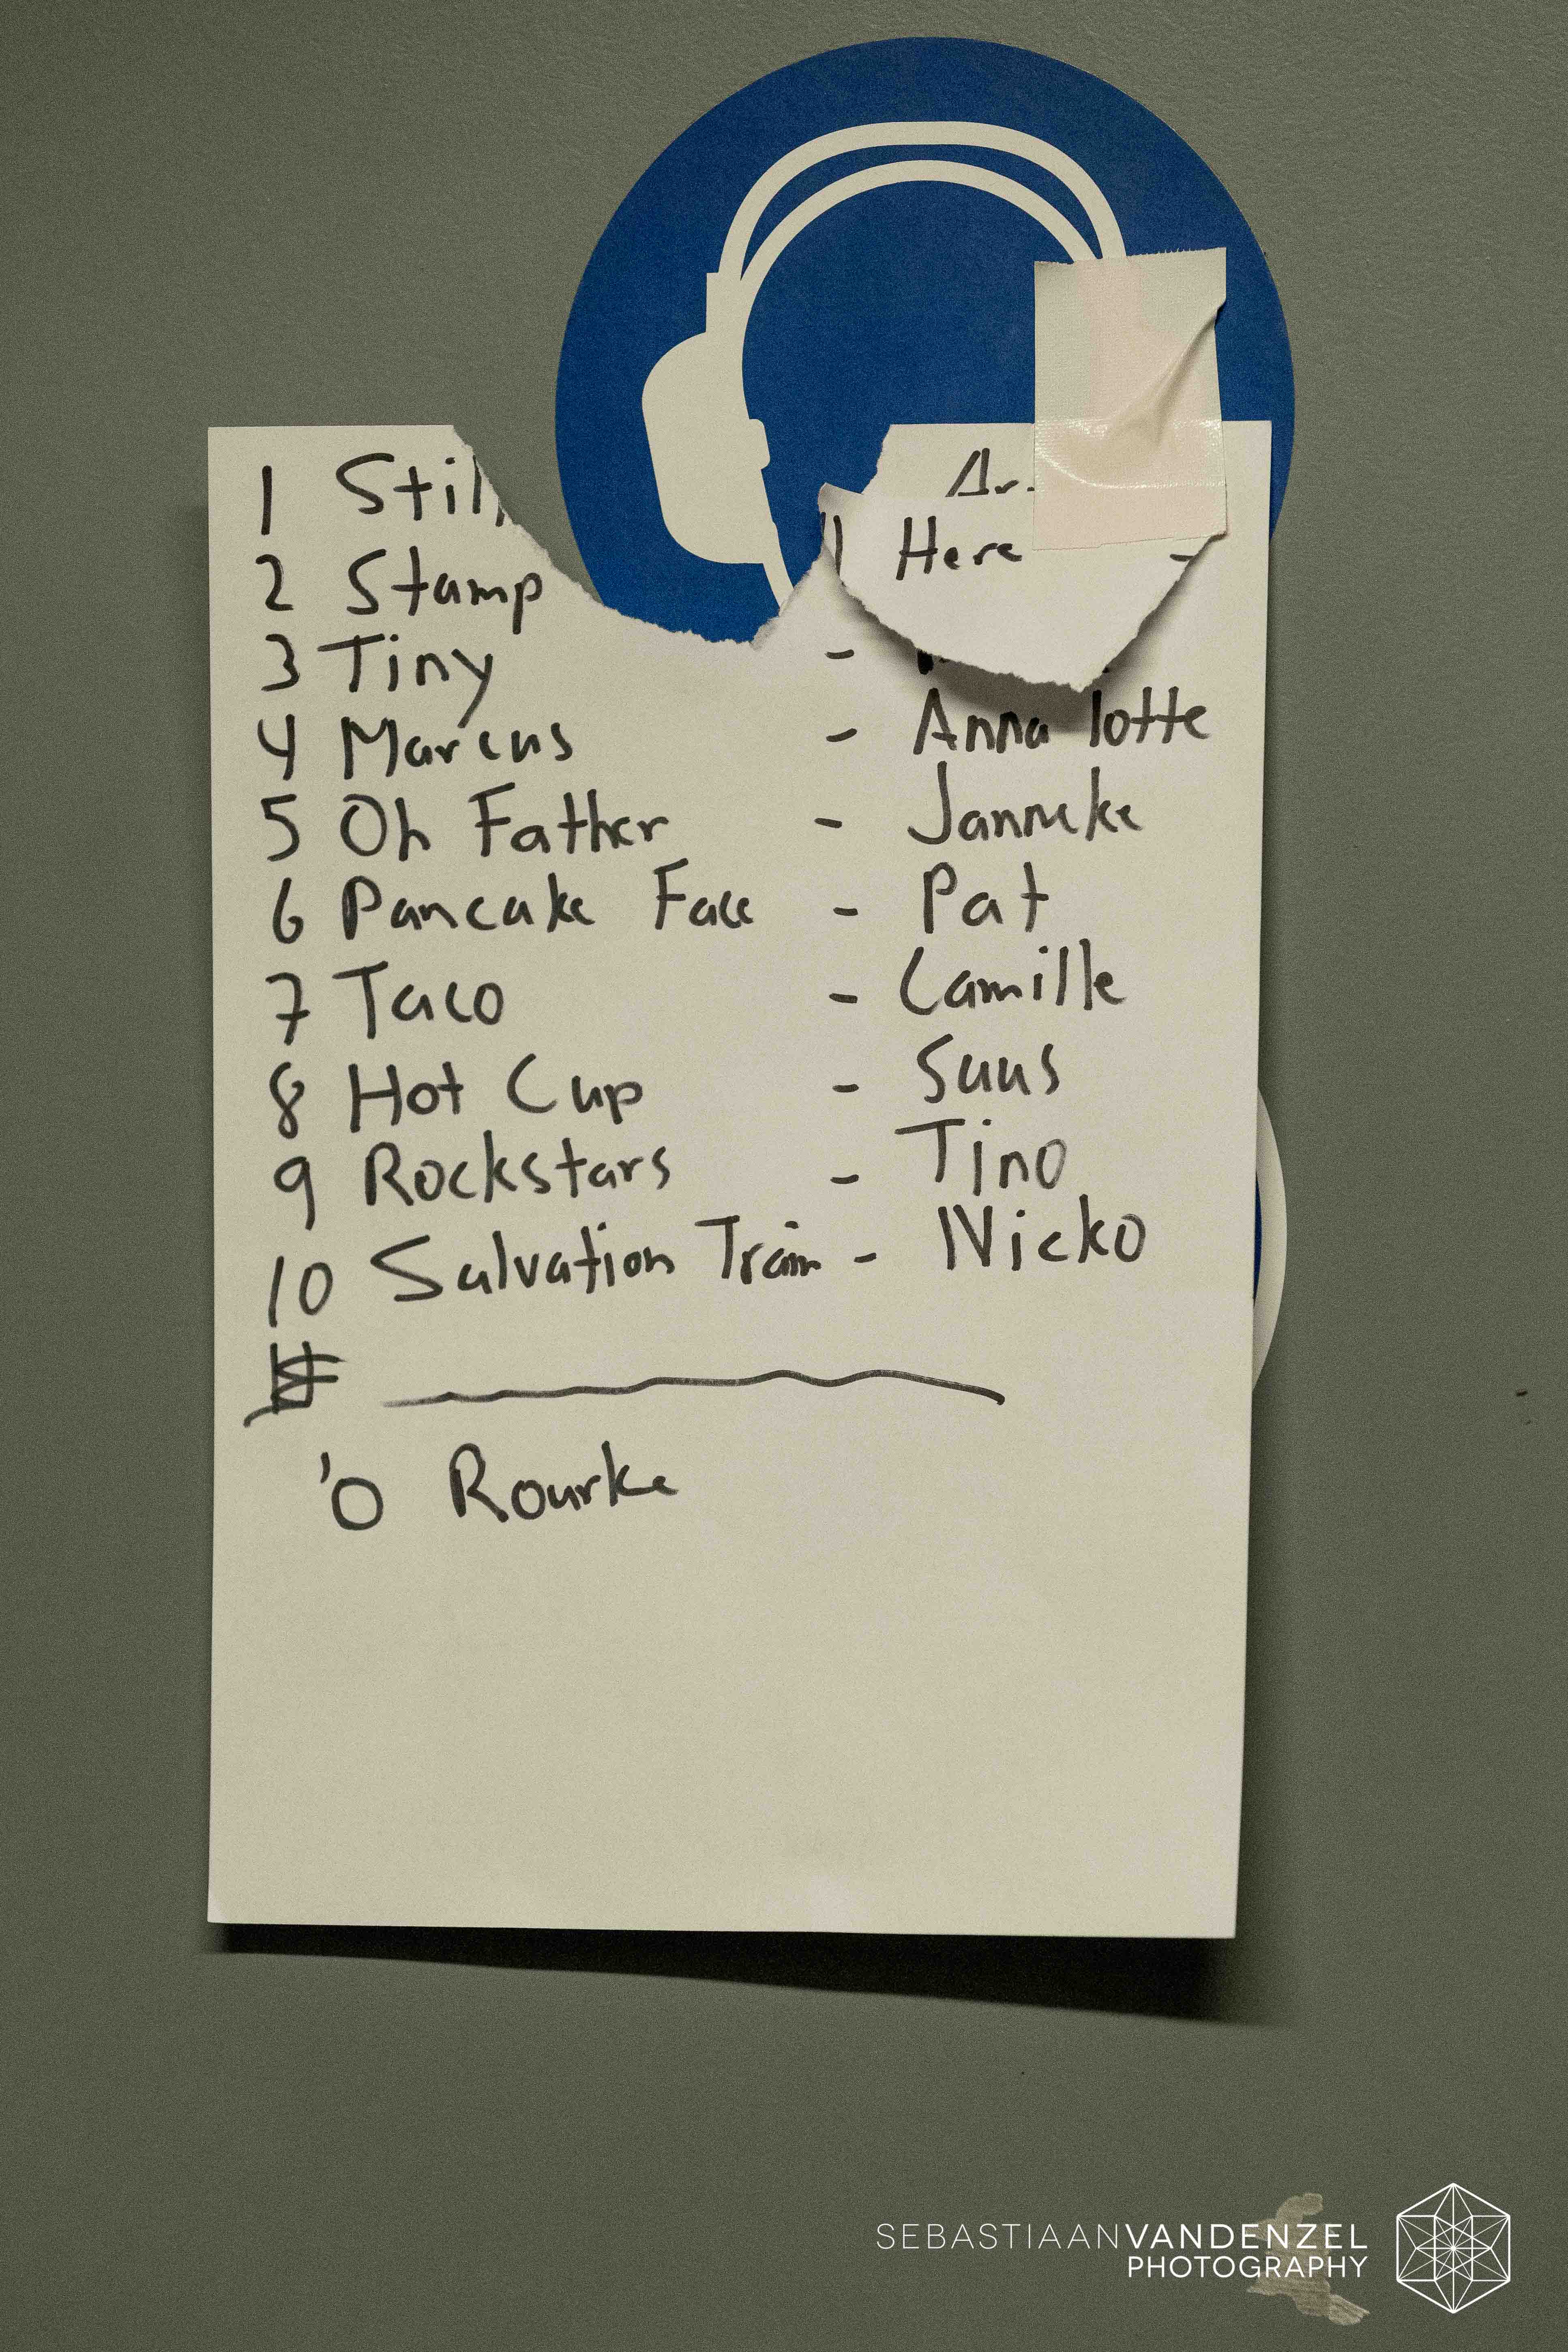 1 Still
Here -
2 Stamp
3 Tiny -
4 Marcus - Anna lotte
5 Oh Father - Janneke
6 Pancake Face - Pat
7 Taco - Camille
8 Hot Cup - Suus
9 Rockstars - Tino
10 Salvation Train - Nicko
'O Rourke
SEBASTIAANVANDENZEL
PHOTOGRAPHY